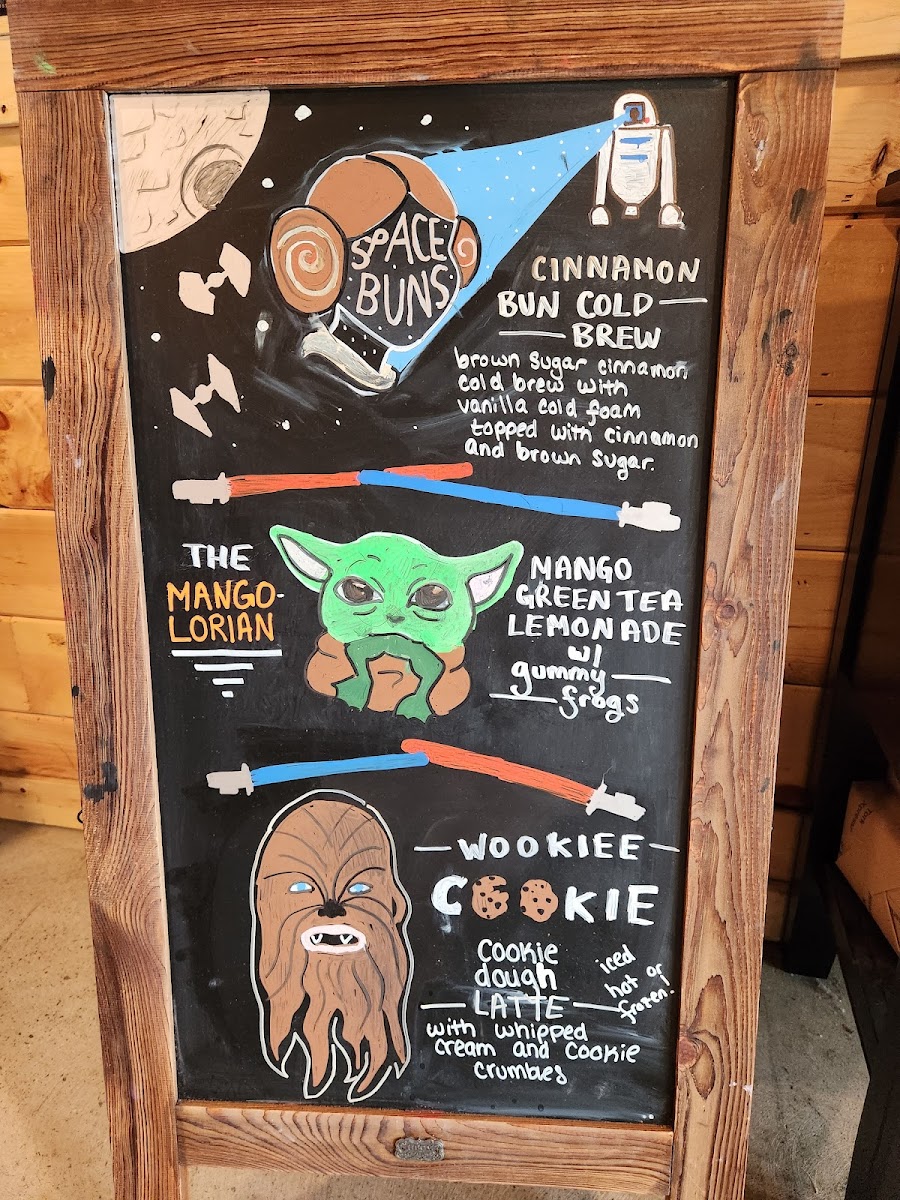 SPACE
BUNS
CINNAMON
BUN COLD
BREW
brown sugar cinnamon
cold brew with
vanilla cold foam
topped with cinnamon
and brown sugar.
THE
MANGO-
LORIAN
MANGO
GREEN TEA
LEMONADE
w/
gummy
frogs
WOOKIEE
COOKIE
Cookie
dough
LATTE
iced
hot or
frozen!
with whipped
cream and cookie
crumbles